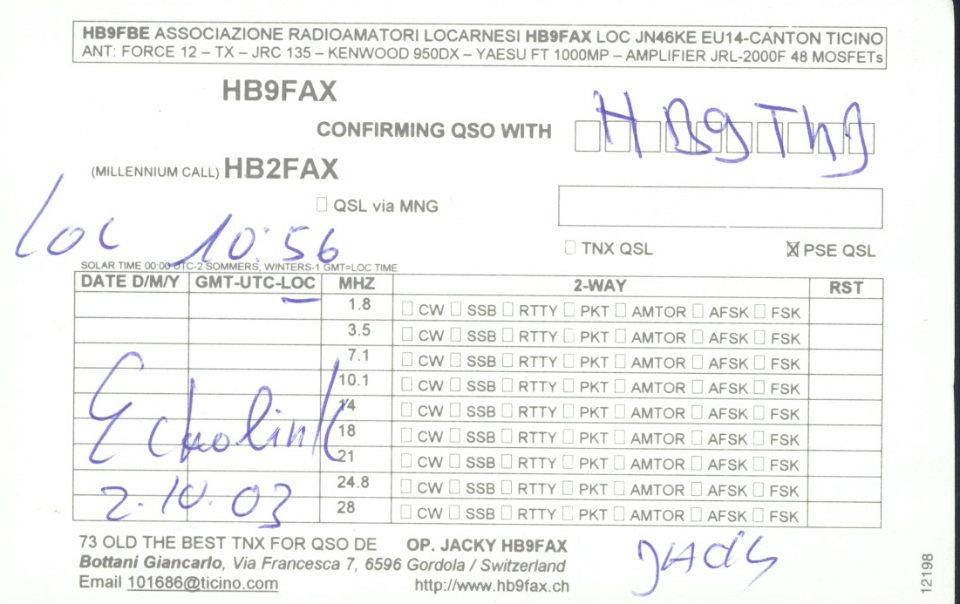 HB9FBE ASSOCIAZIONE RADIOAMATORI LOCARNESI HB9FAX LOC JN46KE EU14-CANTON TICINO
ANT: FORCE 12 – TX – JRC 135 – KENWOOD 950DX – YAESU FT 1000MP – AMPLIFIER JRL-2000F 48 MOSFETs
HB9FAX
CONFIRMING QSO WITH HB9ThJ
(MILLENNIUM CALL) HB2FAX
☐ QSL via MNG
Loc 10:56
☐ TNX QSL ☒ PSE QSL
SOLAR TIME 00:00 UTC-2 SOMMERS, WINTERS-1 GMT=LOC TIME
DATE D/M/Y GMT-UTC-LOC MHZ 2-WAY RST
1.8 ☐ CW ☐ SSB ☐ RTTY ☐ PKT ☐ AMTOR ☐ AFSK ☐ FSK
3.5 ☐ CW ☐ SSB ☐ RTTY ☐ PKT ☐ AMTOR ☐ AFSK ☐ FSK
7.1 ☐ CW ☐ SSB ☐ RTTY ☐ PKT ☐ AMTOR ☐ AFSK ☐ FSK
10.1 ☐ CW ☐ SSB ☐ RTTY ☐ PKT ☐ AMTOR ☐ AFSK ☐ FSK
14 ☐ CW ☐ SSB ☐ RTTY ☐ PKT ☐ AMTOR ☐ AFSK ☐ FSK
Echolink 18 ☐ CW ☐ SSB ☐ RTTY ☐ PKT ☐ AMTOR ☐ AFSK ☐ FSK
21 ☐ CW ☐ SSB ☐ RTTY ☐ PKT ☐ AMTOR ☐ AFSK ☐ FSK
24.8 ☐ CW ☐ SSB ☐ RTTY ☐ PKT ☐ AMTOR ☐ AFSK ☐ FSK
2.10.03 28 ☐ CW ☐ SSB ☐ RTTY ☐ PKT ☐ AMTOR ☐ AFSK ☐ FSK
73 OLD THE BEST TNX FOR QSO DE OP. JACKY HB9FAX
Bottani Giancarlo, Via Francesca 7, 6596 Gordola / Switzerland
Email 101686@ticino.com http://www.hb9fax.ch
12198